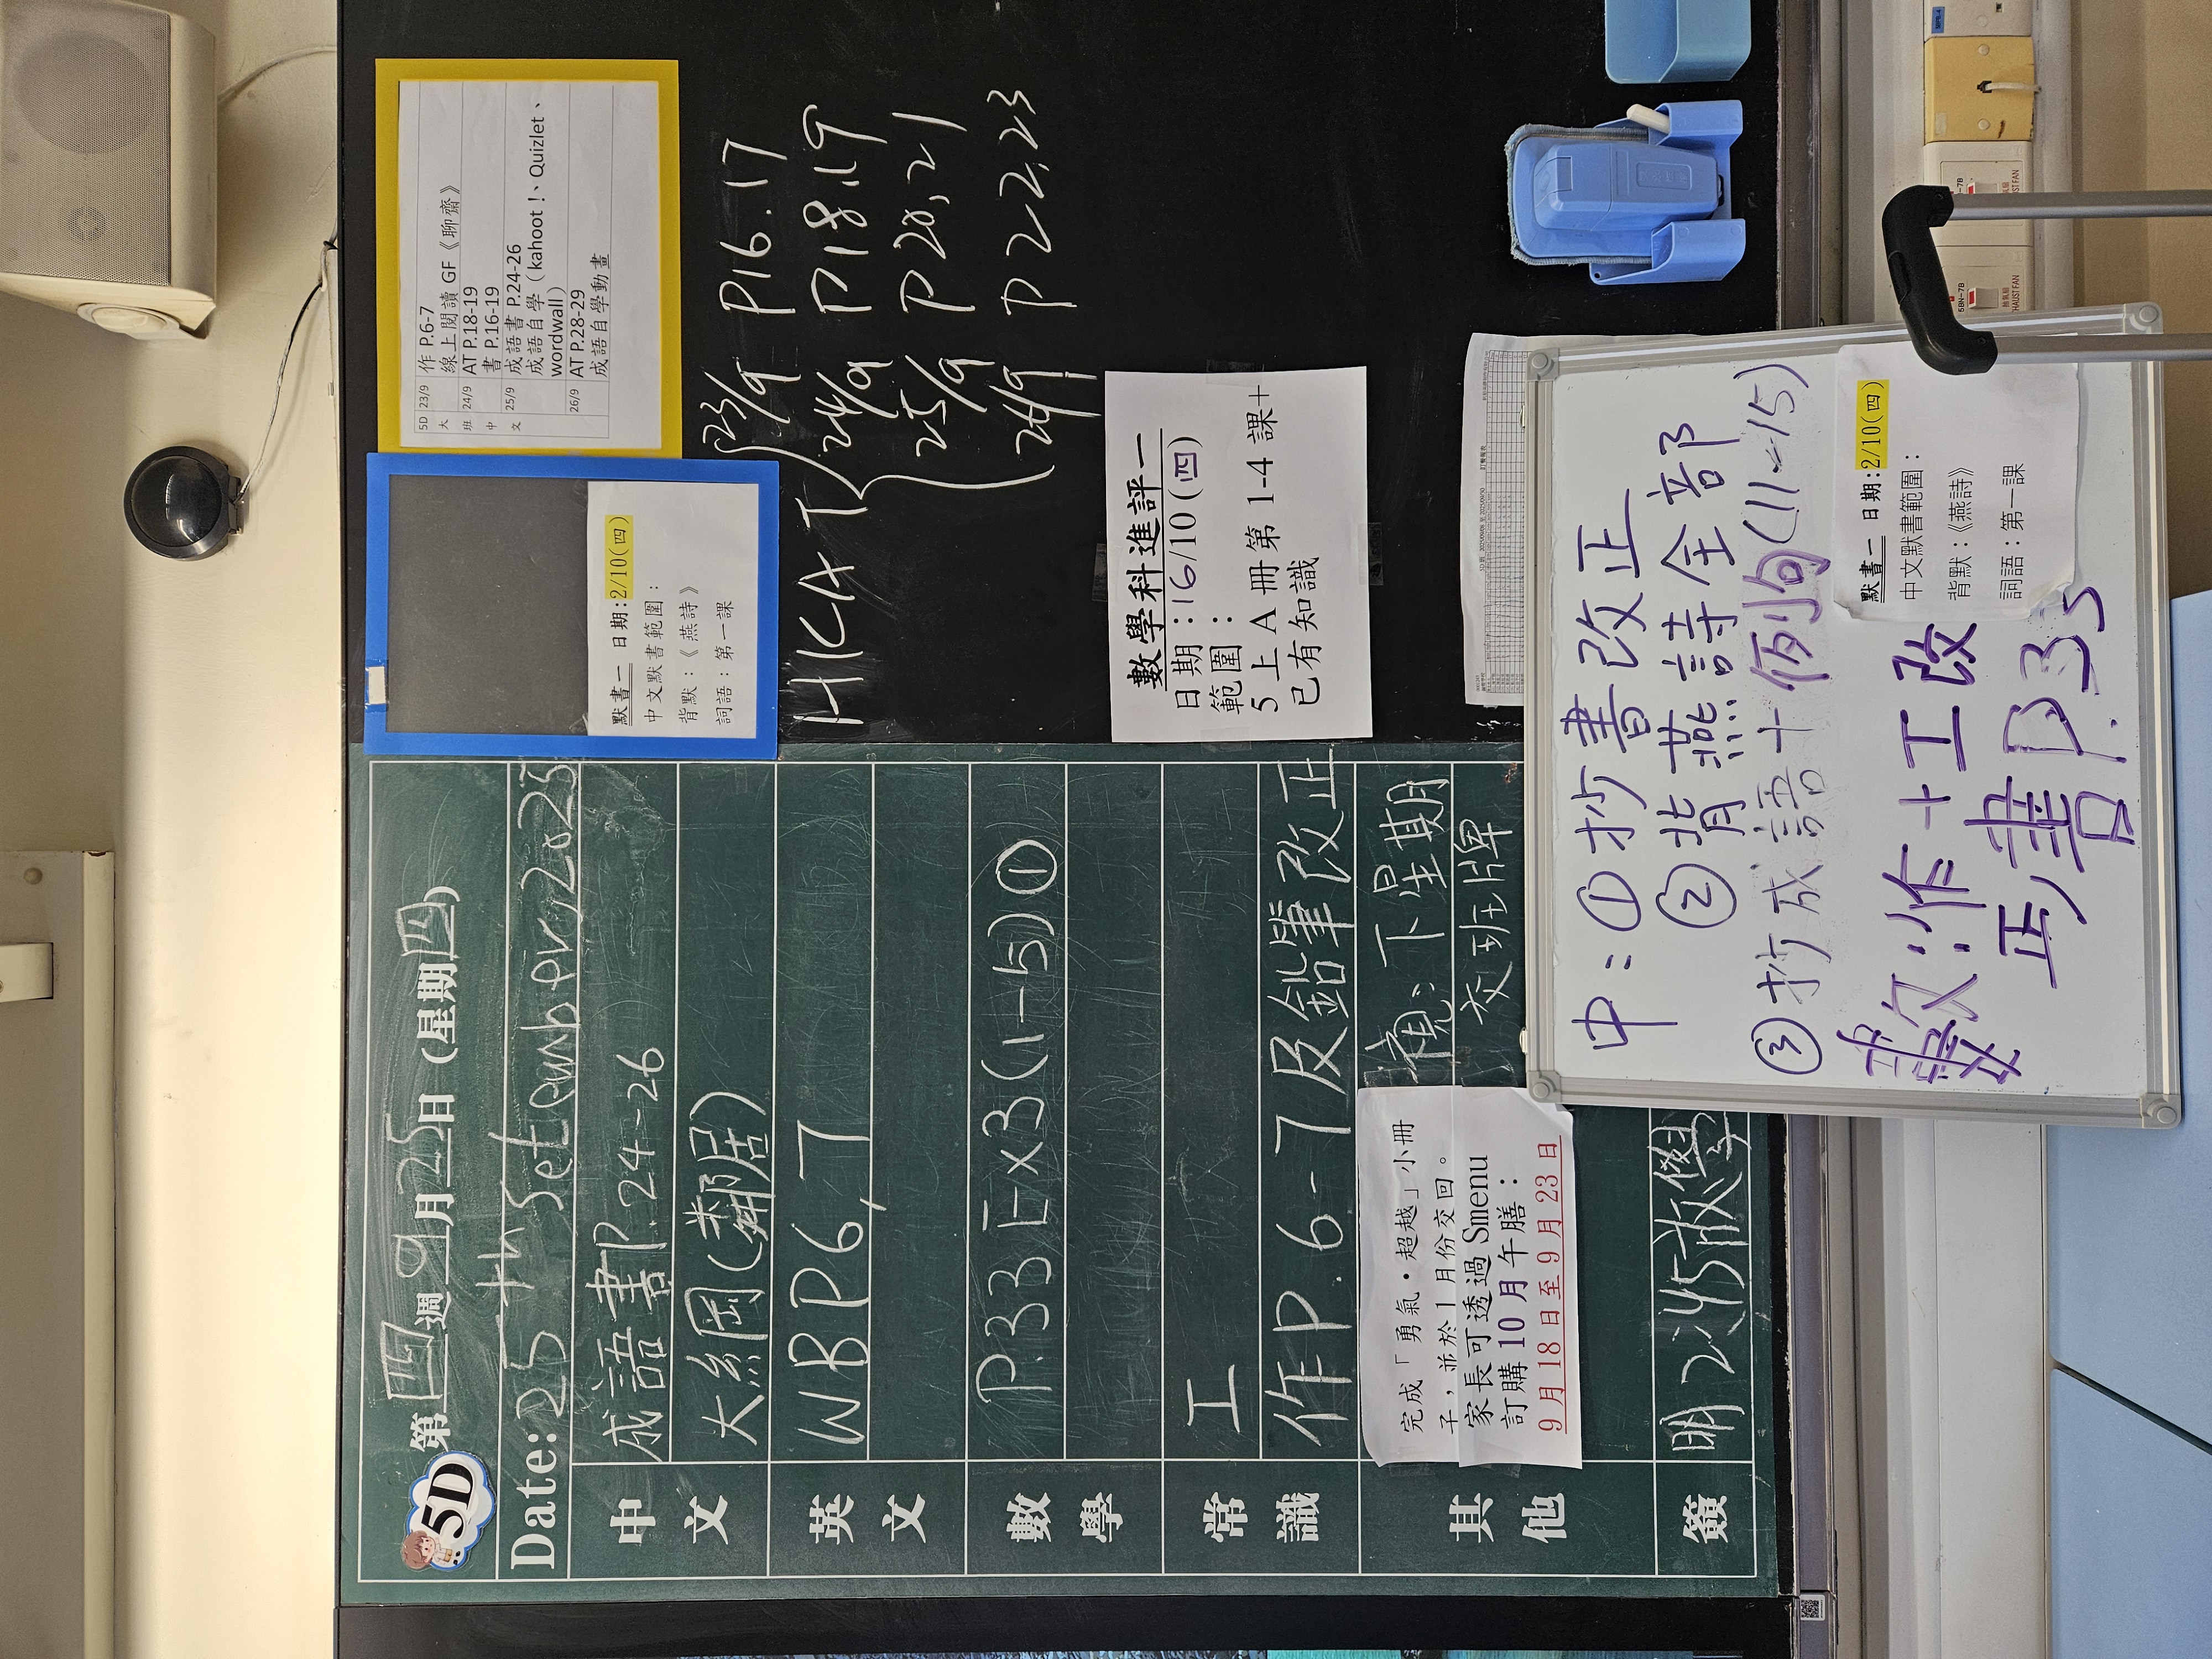 5D
第四週9月25日 (星期四)
Date: 25th Setember, 2025
中文
成語書P.24-26
大綱(鄰居)
英文
WB P6,7
數學
P.33 Ex3(1-5)①
常識
工
作P.6-7及鉛筆改正
其他
完成「勇氣·超越」小冊
子,並於1月份交回。
家長可透過 Smenu
訂購 10 月午膳:
9 月 18 日至 9 月 23 日
下星期
交班牌
簽
明 2:45放學
默書一 日期:2/10(四)
中文默書範圍:
背默:《燕詩》
詞語:第一課
5D大班中文
23/9 作 P.6-7
線上閱讀 GF《聊齋》
24/9 AT P.18-19
書 P.16-19
25/9 成語書 P.24-26
成語自學(kahoot!、Quizlet、
wordwall)
26/9 AT P.28-29
成語自學動畫
HKAT
23/9 P16.17
24/9 P18.19
25/9 P20,21
26/9 P22,23
數學科進評一
日期:16/10(四)
範圍:
5 上 A 冊第 1-4 課+
已有知識
中:①抄書改正
②背燕詩全部
③抄成語+例句(11-15)
數:作+工改
正,書P.35
默書一 日期:2/10(四)
中文默書範圍:
背默:《燕詩》
詞語:第一課